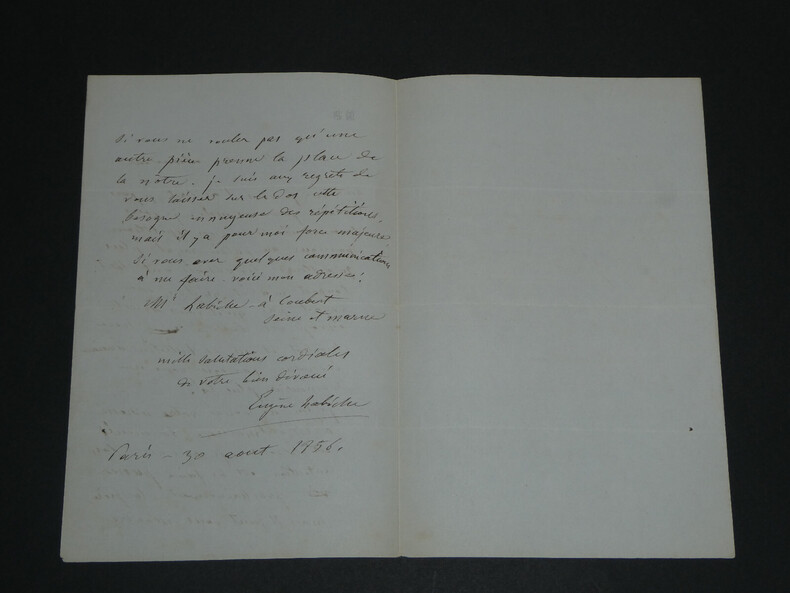 si vous ne voulez pas qu'une
autre pièce prenne la place de
la nôtre. je suis aux regrets de
vous laisser sur le dos cette
besogne ennuyeuse des répétitions,
mais il y a pour moi force majeure.
si vous avez quelques communications
à me faire voici mon adresse:
Mr Labiche à Coubert
seine et marne
mille salutations cordiales
de votre bien dévoué
Eugène Labiche
Paris - 30 aout 1856.